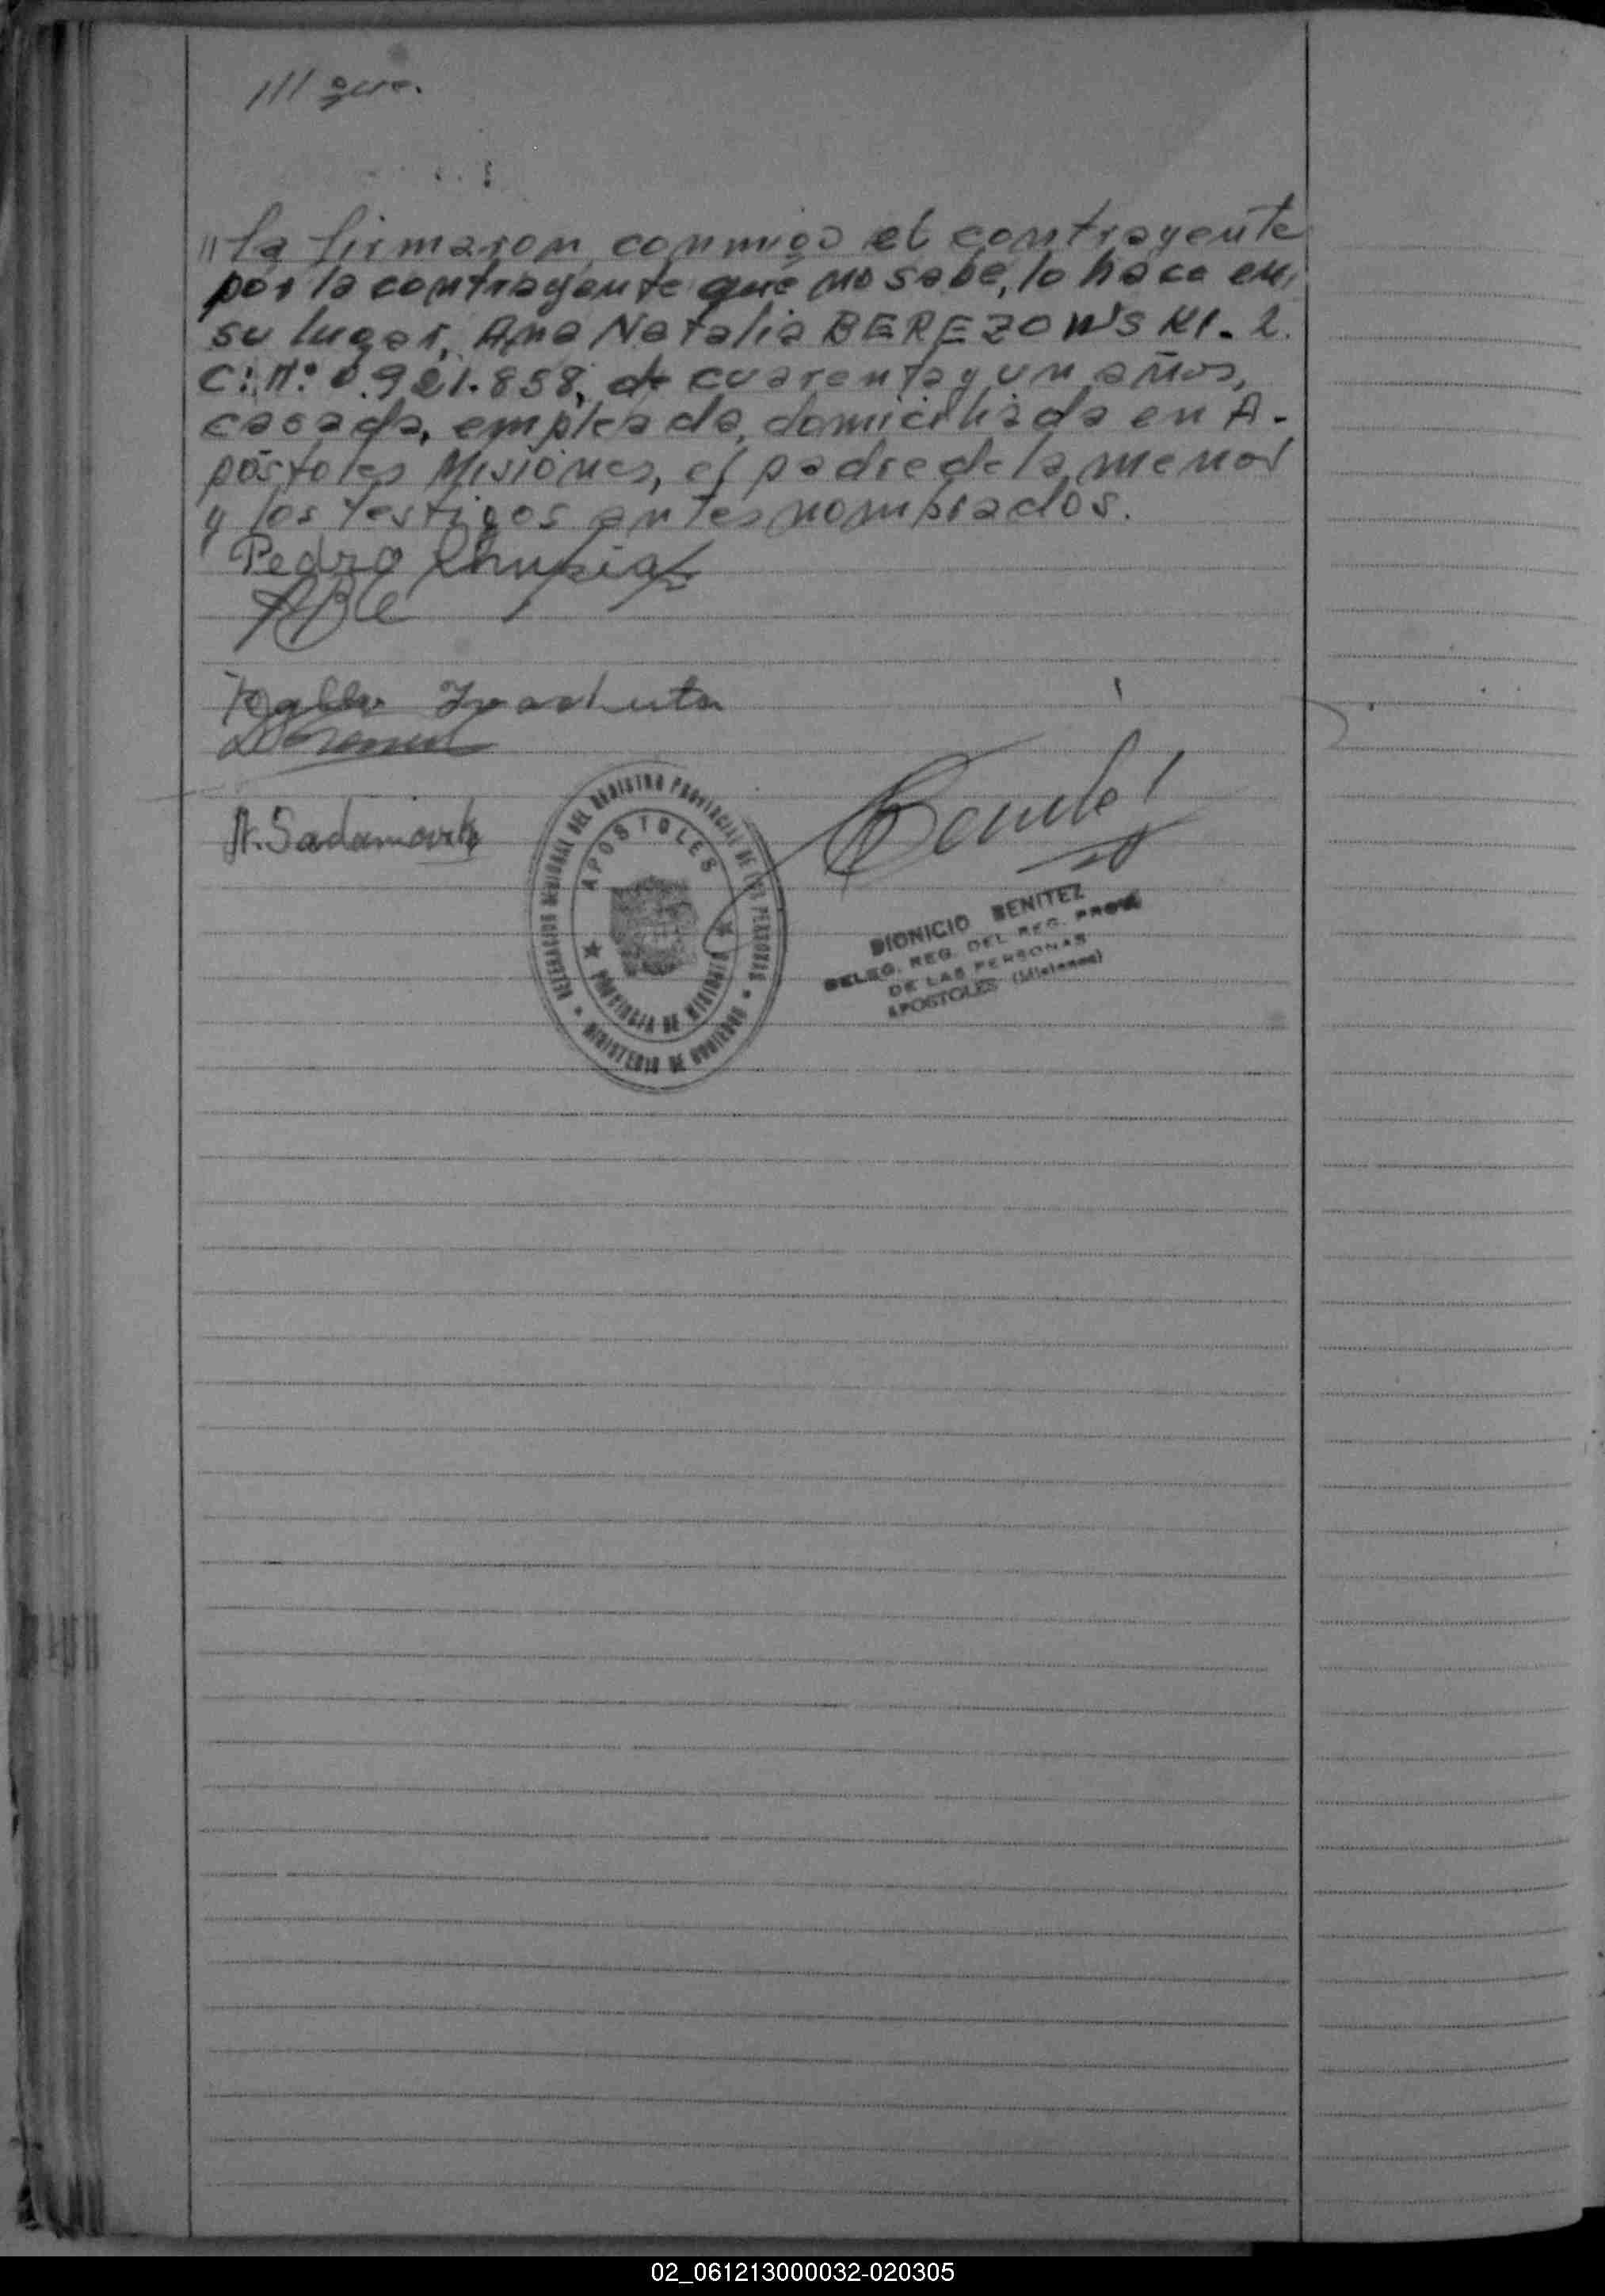 /// que.
"la firmaron conmigo el contrayente
por la contrayente que no sabe, lo hace en
su lugar, Ana Natalia BEREZOWSKI. L.
C: N: 0.921.858, de cuarenta y un años,
casada, empleada, domiciliada en A-
póstoles Misiones, el padre de la menor
y los testigos antes nombrados.
Pedro
DELEGACION REGIONAL DEL REGISTRO PROVINCIAL DE LAS PERSONAS
APOSTOLES
PROVINCIA DE MISIONES
MINISTERIO DE GOBIERNO
DIONICIO BENITEZ
DELEG. REG. DEL REG. PROV.
DE LAS PERSONAS
APOSTOLES (Misiones)
02_061213000032-020305